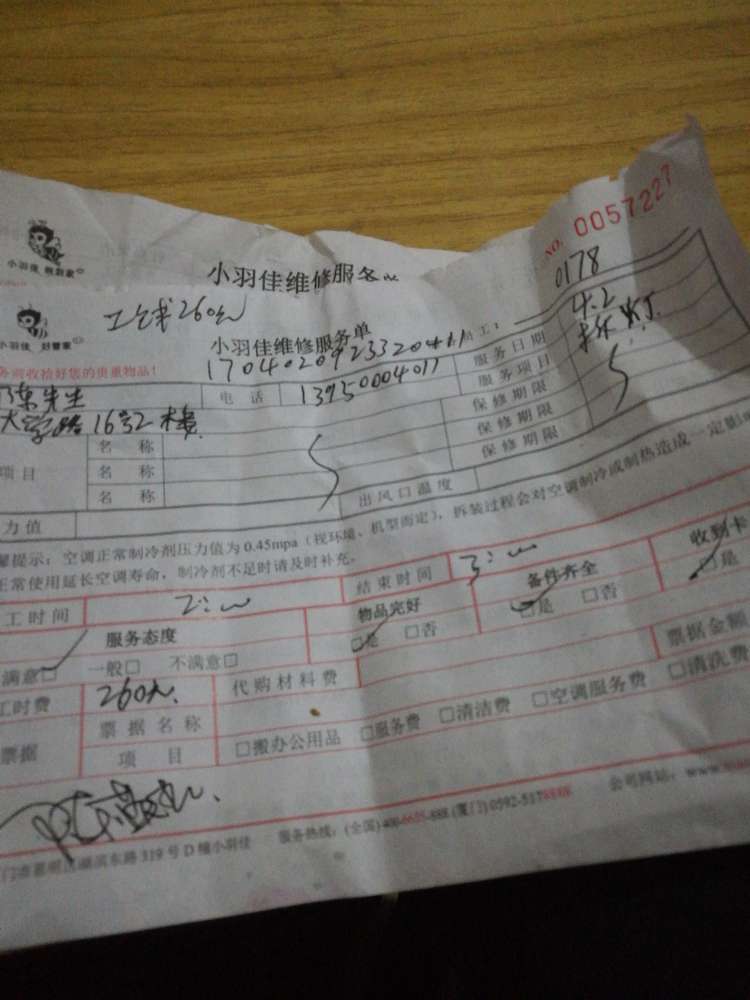 NO. 0057227
小羽佳
小羽佳维修服务
0178
小羽佳 好管家
工钱260元
小羽佳维修服务单
员工：
收拾好您的贵重物品！
服务日期 4.2
陈先生
电话 13950004011
服务项目
大学路16号2楼
保修期限
项目
名称
保修期限
名称
保修期限
名称
力值
出风口温度
提示：空调正常制冷剂压力值为 0.45mpa（视环境、机型而定），拆装过程会对空调制冷或制热造成一定影
正常使用延长空调寿命，制冷剂不足时请及时补充。
工时间 2:00
结束时间 3:00
服务态度
物品完好
备件齐全
收到卡
满意□ 一般□ 不满意□
□是 □否
□是 □否
□是
工时费 260元
代购材料费
票据金额
票据
票据名称
项目
□搬办公用品 □服务费 □清洁费 □空调服务费 □清洗费
东路 319 号 D 幢小羽佳 服务热线：(全国)400-6605-888 (厦门) 0592-5178888 公司网站：www.